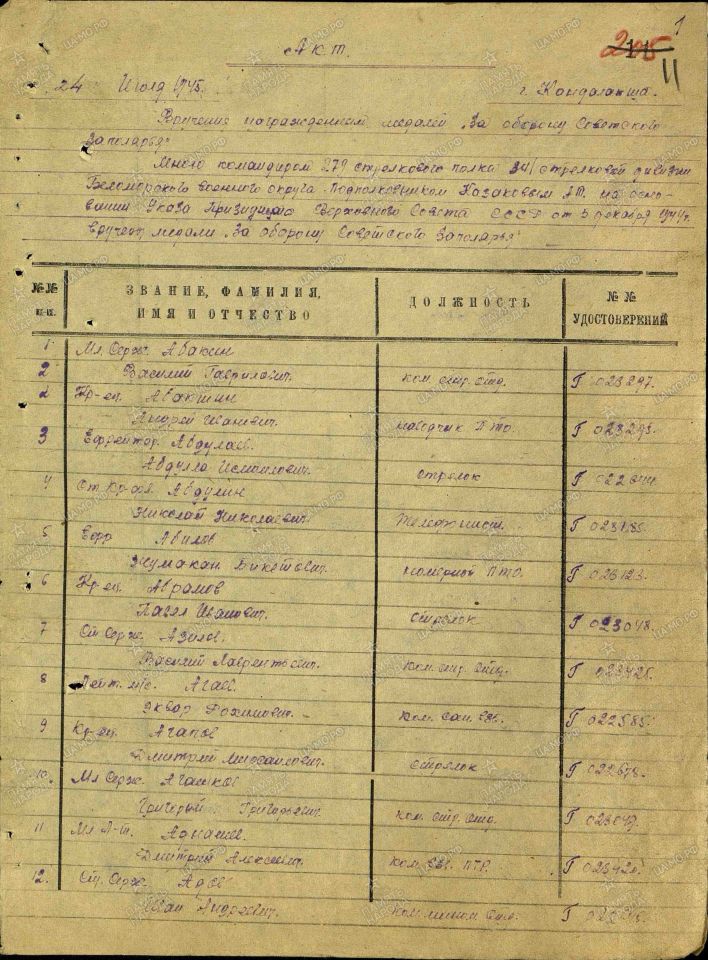 1
205
11
Акт.
24 Июля 1945. г. Кандалакша.
Вручение награжденным медалей "За оборону Советского
Заполярья"
Мною командиром 279 стрелкового полка 341 стрелковой дивизии
Беломорского военного округа Подполковником Казаковым А.Т. на осно-
вании Указа Президиума Верховного Совета СССР от 5 декабря 1944г.
вручен медали "За оборону Советского Заполярья"
№№ п-п. ЗВАНИЕ, ФАМИЛИЯ, ИМЯ И ОТЧЕСТВО ДОЛЖНОСТЬ №№ УДОСТОВЕРЕНИЙ
1 Мл. Серж. Абакин
Василий Гаврилович. ком. стр. отд. Г 023297.
2 Кр-ец. Авакшин
Андрей Иванович. наводчик ПТО. Г
3 Ефрейтор. Абдулаев.
Абдулла Исмаилович. стрелок Г
4 Абдулин
Николай Николаевич. Г
5 Ефр Абилов
Жумакан номерной ПТО. Г 026123.
6 Кр-ец. Абрамов
Павел Иванович. стрелок Г 023048.
7 Ст Серж.
Василий Лаврентьевич. ком. стр. отд. Г 023425.
8 Лейт. м/с. Агаев.
ком. сан. взв. Г 022585.
9 Кр-ец. Агапов
Дмитрий Михайлович. стрелок Г 022678.
10. Мл Серж. Агашков
Григорий Григорьевич. ком. стр. отд. Г 023049.
11 Мл Л-т.
Дмитрий Алексеевич. ком. взв. ПТР. Г
12. Ст. Серж.
Иван Андреевич. Г